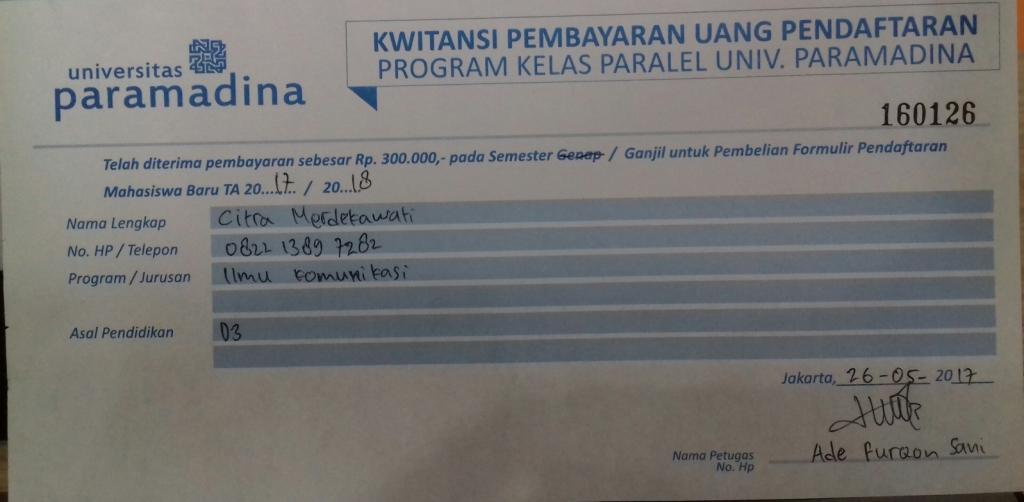 universitas
paramadina
KWITANSI PEMBAYARAN UANG PENDAFTARAN
PROGRAM KELAS PARALEL UNIV. PARAMADINA
160126
Telah diterima pembayaran sebesar Rp. 300.000,- pada Semester Genap / Ganjil untuk Pembelian Formulir Pendaftaran
Mahasiswa Baru TA 20...17... / 20...18
Nama Lengkap Citra Merdekawati
No. HP / Telepon 0822 1389 7282
Program / Jurusan Ilmu komunikasi
Asal Pendidikan D3
Jakarta, 26-05- 2017
Nama Petugas Ade Furqon Sani
No. Hp